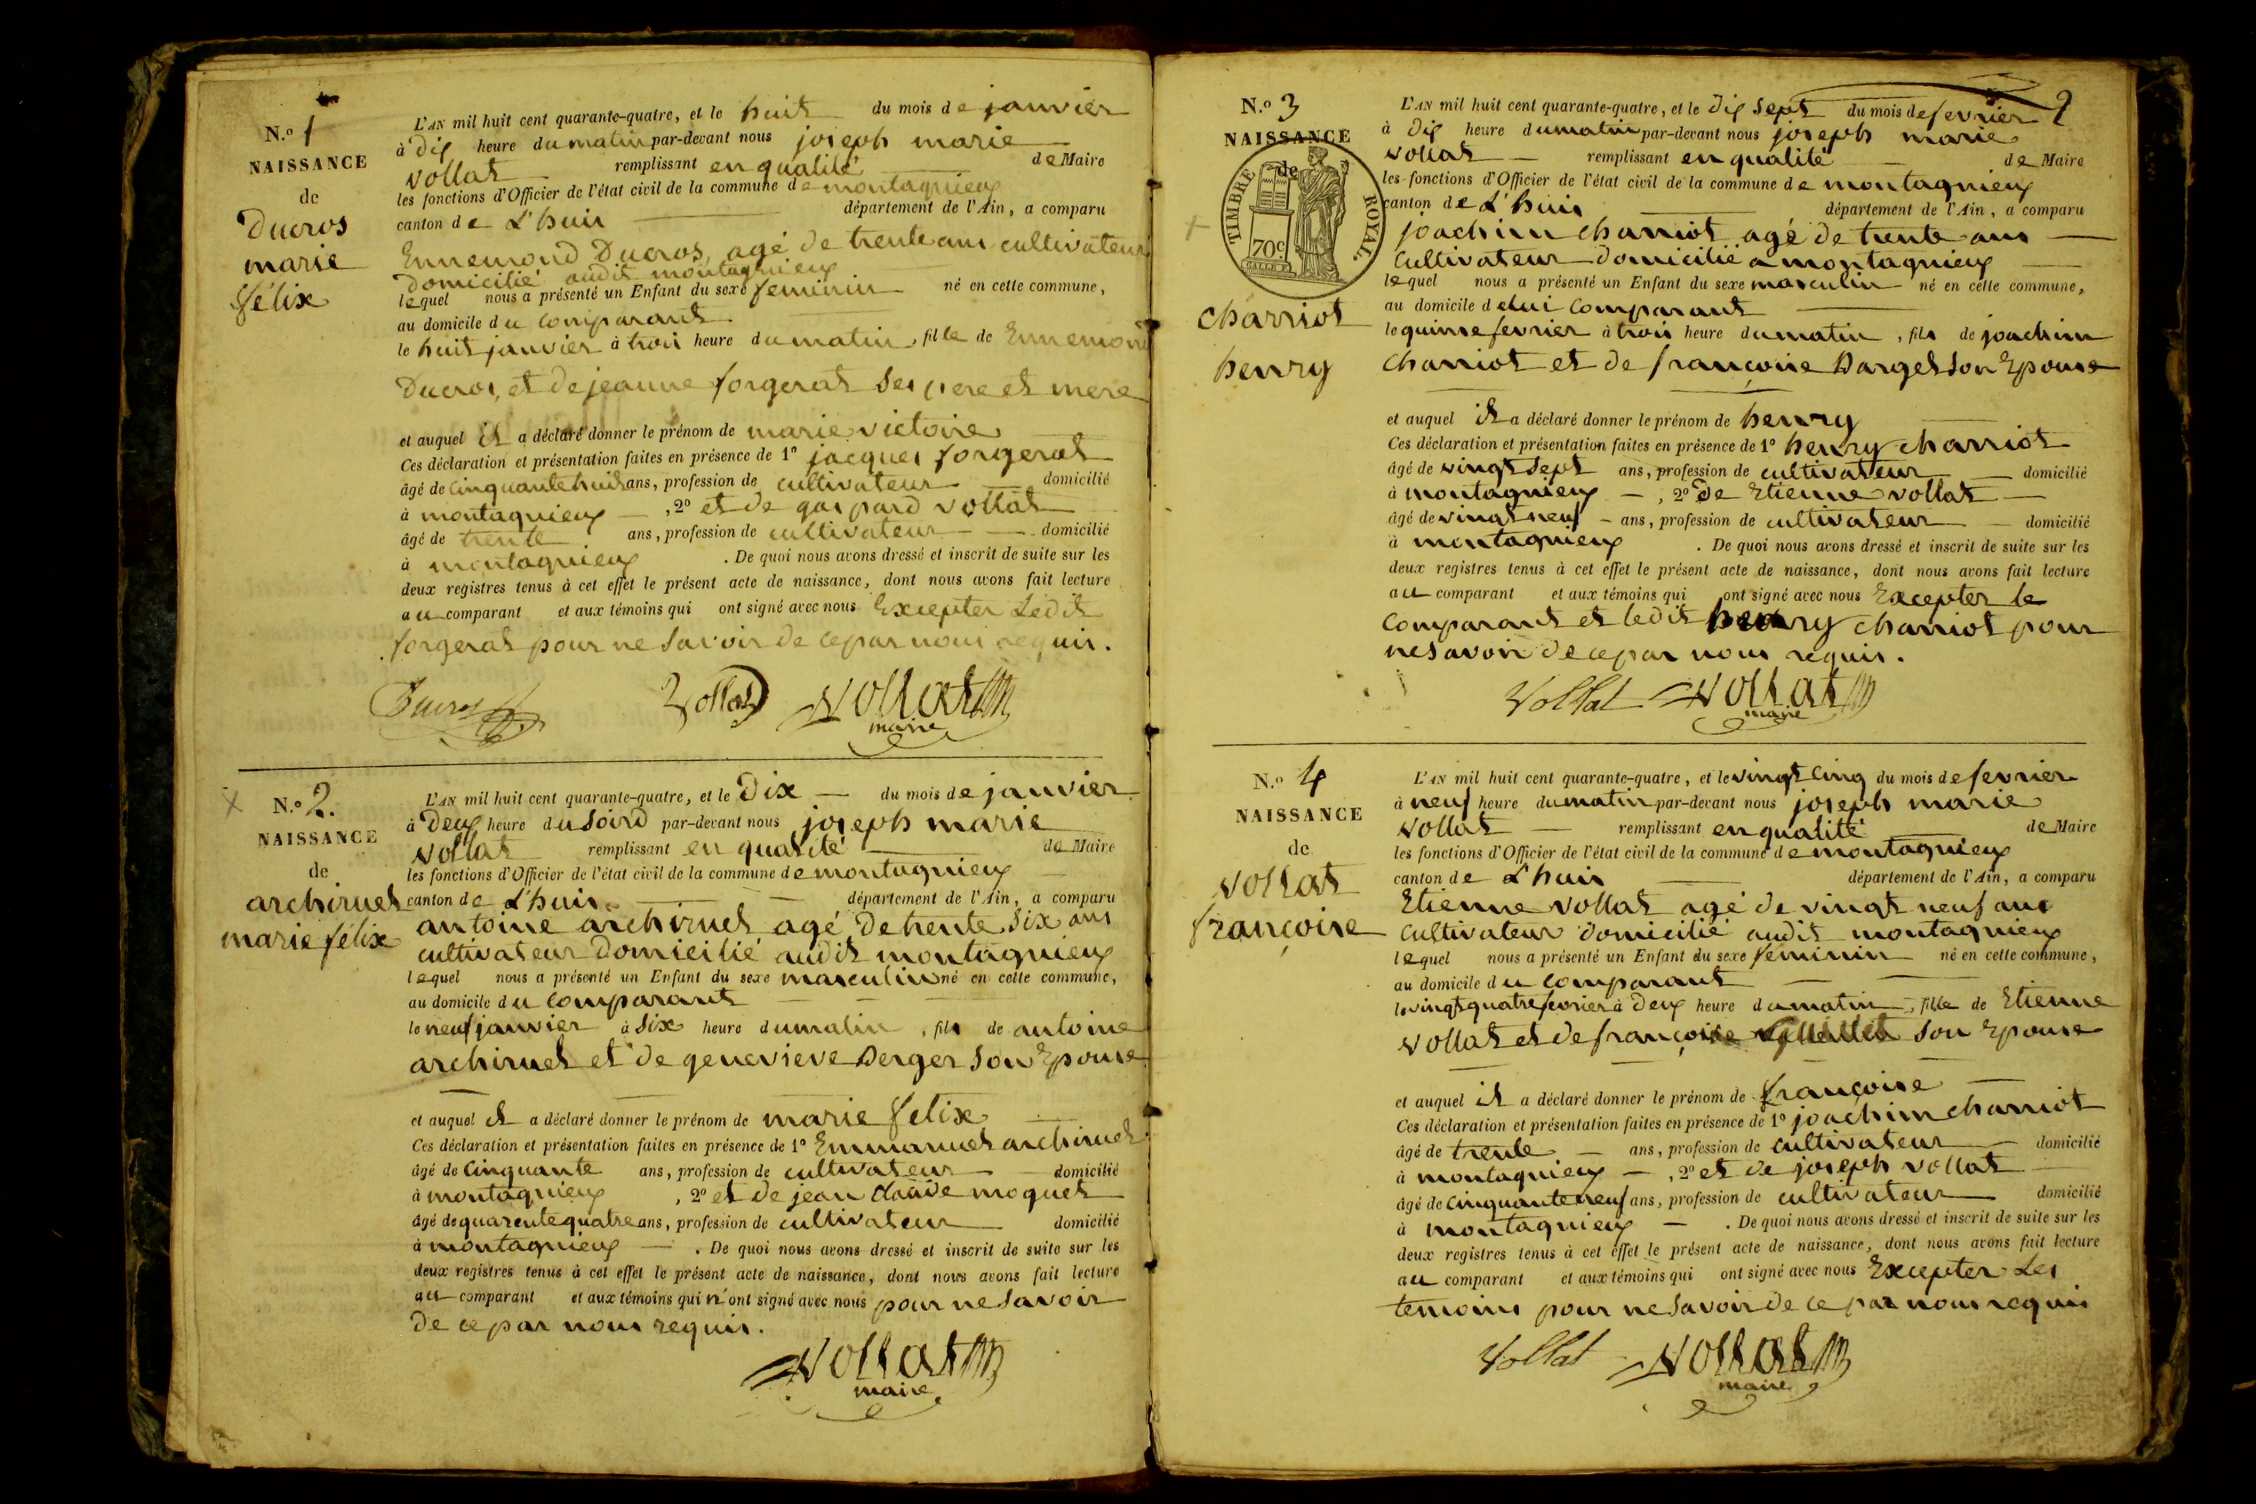 N.º 1
NAISSANCE
de
Ducros
marie
félix
L'AN mil huit cent quarante-quatre, et le huit du mois de janvier
à dix heure du matin par-devant nous joseph marie
vollat remplissant en qualité de Maire
les fonctions d'Officier de l'état civil de la commune de montagnieux
canton de L'huis département de l'Ain, a comparu
Ennemond Ducros, agé de trente ans cultivateur
Domicilié audit montagnieux
lequel nous a présenté un Enfant du sexe feminin né en cette commune,
au domicile du comparant
le huit janvier à trois heure du matin, fille de Ennemond
Ducros, et de jeanne forgerat ses pere et mere
et auquel il a déclaré donner le prénom de marie victoire
Ces déclaration et présentation faites en présence de 1º jacques forgerat
âgé de cinquante huit ans, profession de cultivateur domicilié
à montagnieux, 2º et de gaspard vollat
âgé de trente ans, profession de cultivateur domicilié
à montagnieux. De quoi nous avons dressé et inscrit de suite sur les
deux registres tenus à cet effet le présent acte de naissance, dont nous avons fait lecture
au comparant et aux témoins qui ont signé avec nous Excepter Ledit
forgerat pour ne savoir de ce par nous requis.
Ducros Vollat vollat
maire
N.º 2.
NAISSANCE
de
archiruel
marie félix
L'AN mil huit cent quarante-quatre, et le Dix du mois de janvier
à Deux heure du soird par-devant nous joseph marie
vollat remplissant en qualité de Maire
les fonctions d'Officier de l'état civil de la commune de montagnieux
canton de L'huis département de l'Ain, a comparu
antoine archiruel agé de trente six ans
cultivateur Domicilié audit montagnieux
lequel nous a présenté un Enfant du sexe masculin né en cette commune,
au domicile du comparant
le neuf janvier à six heure du matin, fils de antoine
archiruel et de genevieve Berger son Epouse
et auquel il a déclaré donner le prénom de marie félix
Ces déclaration et présentation faites en présence de 1º Emmanuel archiruel
âgé de cinquante ans, profession de cultivateur domicilié
à montagnieux, 2º et de jean claude moquet
âgé de quarente quatre ans, profession de cultivateur domicilié
à montagnieux. De quoi nous avons dressé et inscrit de suite sur les
deux registres tenus à cet effet le présent acte de naissance, dont nous avons fait lecture
au comparant et aux témoins qui n'ont signé avec nous pour ne savoir
de ce par nous requis.
vollat
maire
2
N.º 3
NAISSANCE
de
TIMBRE ROYAL.
70c
charriot
henry
L'AN mil huit cent quarante-quatre, et le dix sept du mois de fevrier
à dix heure du matin par-devant nous joseph marie
vollat remplissant en qualité de Maire
les fonctions d'Officier de l'état civil de la commune de montagnieux
canton de L'huis département de l'Ain, a comparu
joachim charriot agé de trente ans
cultivateur domicilié a montagnieux
lequel nous a présenté un Enfant du sexe masculin né en cette commune,
au domicile de lui comparant
le quinse fevrier à trois heure du matin, fils de joachim
charriot et de françoise Barget son Epouse
et auquel il a déclaré donner le prénom de henry
Ces déclaration et présentation faites en présence de 1º henry charriot
âgé de vingt sept ans, profession de cultivateur domicilié
à montagnieux, 2º de Etienne vollat
âgé de vingt neuf ans, profession de cultivateur domicilié
à montagnieux. De quoi nous avons dressé et inscrit de suite sur les
deux registres tenus à cet effet le présent acte de naissance, dont nous avons fait lecture
au comparant et aux témoins qui ont signé avec nous Excepter le
comparant et ledit henry charriot pour
ne savoir de ce par nous requis.
Vollat vollat
maire
N.º 4
NAISSANCE
de
vollat
françoise
L'AN mil huit cent quarante-quatre, et le vingt cinq du mois de fevrier
à neuf heure du matin par-devant nous joseph marie
vollat remplissant en qualité de Maire
les fonctions d'Officier de l'état civil de la commune de montagnieux
canton de L'huis département de l'Ain, a comparu
Etienne vollat agé de vingt neuf ans
cultivateur domicilié audit montagnieux
lequel nous a présenté un Enfant du sexe féminin né en cette commune,
au domicile du comparant
le vingt quatre fevrier à deux heure du matin, fille de Etienne
vollat et de françoise son Epouse
et auquel il a déclaré donner le prénom de françoise
Ces déclaration et présentation faites en présence de 1º joachim charriot
âgé de trente ans, profession de cultivateur domicilié
à montagnieux, 2º et de joseph vollat
âgé de cinquante neuf ans, profession de cultivateur domicilié
à montagnieux. De quoi nous avons dressé et inscrit de suite sur les
deux registres tenus à cet effet le présent acte de naissance, dont nous avons fait lecture
au comparant et aux témoins qui ont signé avec nous Excepter Les
temoins pour ne savoir de ce par nous requis
Vollat vollat
maire